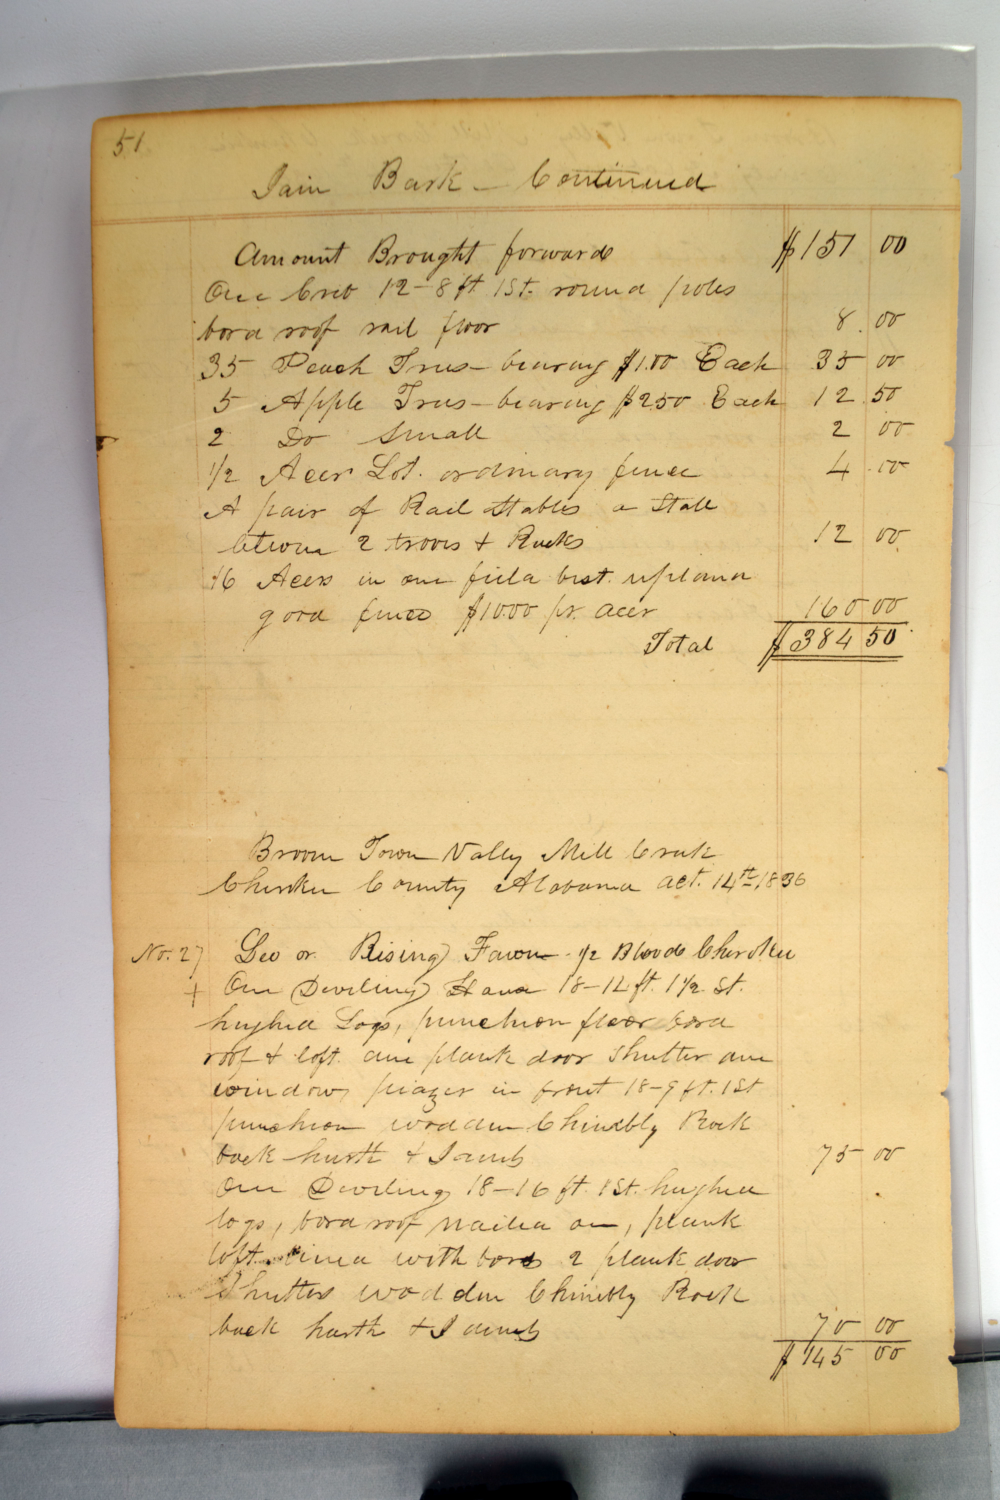 51
Iain Bark - Continued
Amount Brought forward $151 00
One Crib 12-8 ft. 1 St. round poles
bord roof rail floor 8.00
35 Peach Trees - bearing $1.00 Each 35 00
5 Apple Trees - bearing $250 Each 12.50
2 Do Small 2 00
1/2 Acer Lot. ordinary fence 4.00
A pair of Rail Stables a Stall
betwen 2 troves & Racks 12 00
16 Acers in one field best. upland
good fence $10.00 pr. acer 160 00
Total $384 50
Broom Town Vally Mill Creek
Cherokee County Alabama Oct. 14th 1836
No. 27 Geo or Rising Fawn - 1/2 Blood Cherokee
+ One Dweling House 18-12 ft. 1 1/2 St.
hughed Logs, puncheon floor bord
roof & loft. one plank door Shutter one
window, piazer in front 18-9 ft. 1 St
puncheon wodden Chimbly Rock
back harth & Jamb 75 00
One Dweling 18-16 ft. 1 St. hughed
logs, bord roof nailed on, plank
loft. lined with bords 2 plank door
Shutters wodden Chimbly Rock
back harth & Jamb 70 00
$145 00